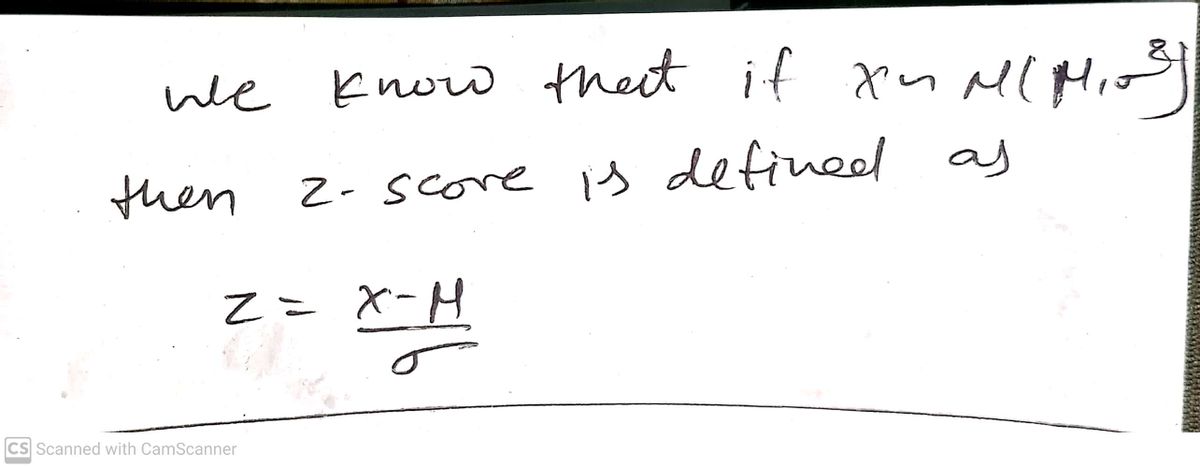 We know that if X ~ N(μ, σ²)
then z-score is defined as
z = X-μ
σ
CS Scanned with CamScanner